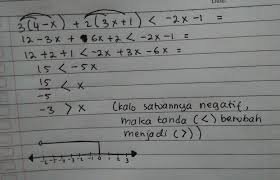 3(4-x) + 2(3x+1) < -2x-1 =
12-3x + 6x+2 < -2x-1 =
12+2+1 < -2x+3x-6x =
15 < -5x
15/-5 < x
-3 > x (kalo satuannya negatif,
maka tanda (<) berubah
menjadi (>))
-1 0 1 2 3